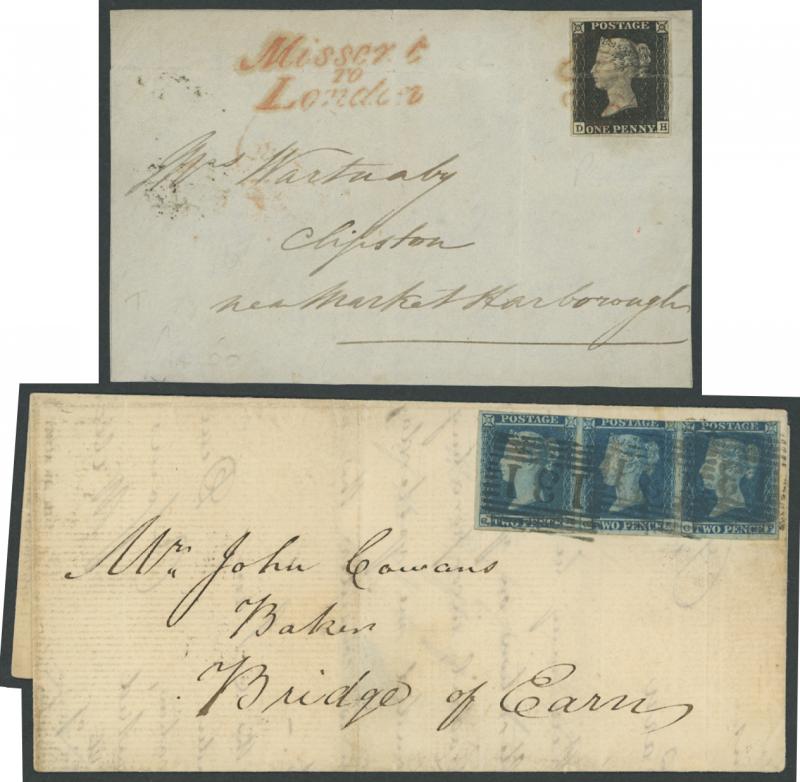 Missent
TO
London
POSTAGE
D H
ONE PENNY
Mrs Wartnaby
Clipston
near Market Harborough
POSTAGE POSTAGE POSTAGE
TWO PENCE TWO PENCE TWO PENCE
G F
131
Mr. John Cowans
Baker
Bridge of Earn